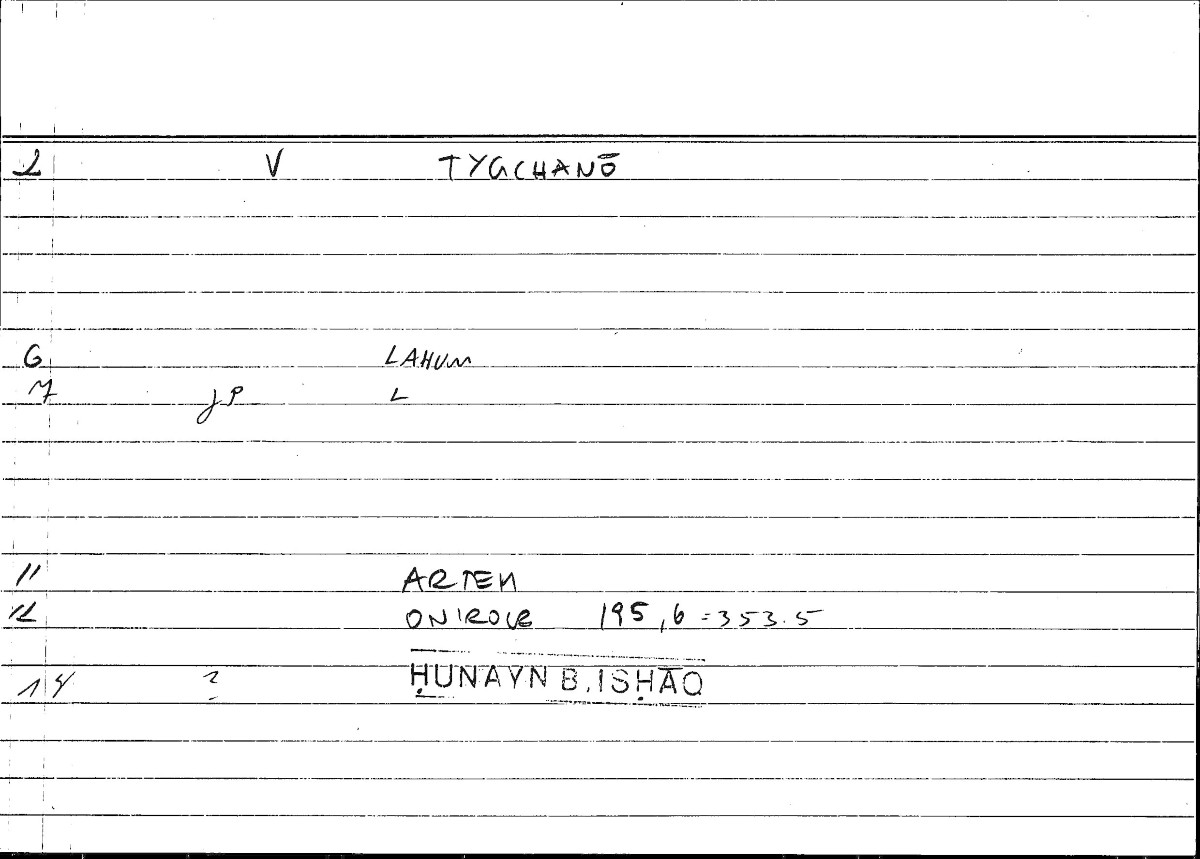 2 V TYGCHANŌ
6 LAHUM
7 JP L
11 ARTEM
12 ONIROCR 195,6 = 353.5
14 ? ḤUNAYN B. ISḤĀQ